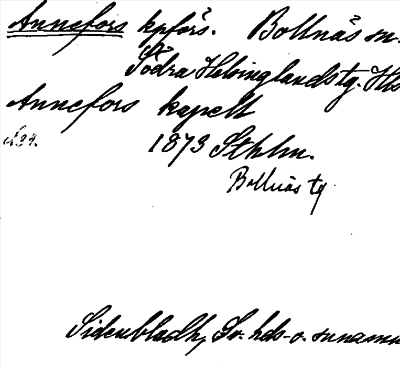 Annefors kpförs. Bollnäs sn.
Södra Helsinglands tg. Hls
Annefors kapell
1873 Sthlm.
Bollnäs tg
Sidenbladh, Sv. hds- o. snnamn